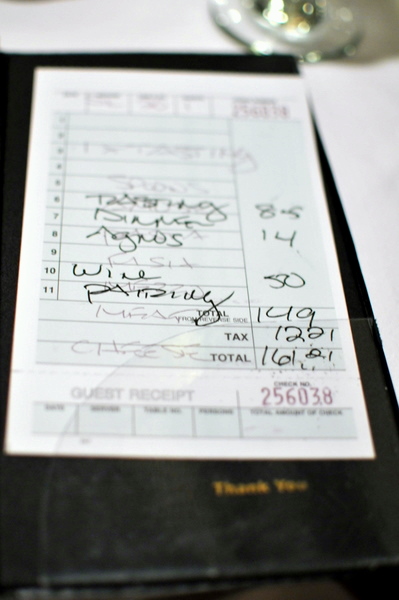 256038
1
2
3
4
5
6 TASTING 85
7 DINNER
8 AGNOS 14
9
10 WINE 50
11 PAIRING
TOTAL 149
FROM REVERSE SIDE
TAX 12.21
CHEESE TOTAL 161.21
CHECK NO.
GUEST RECEIPT 256038
DATE SERVER TABLE NO. PERSONS TOTAL AMOUNT OF CHECK
Thank You